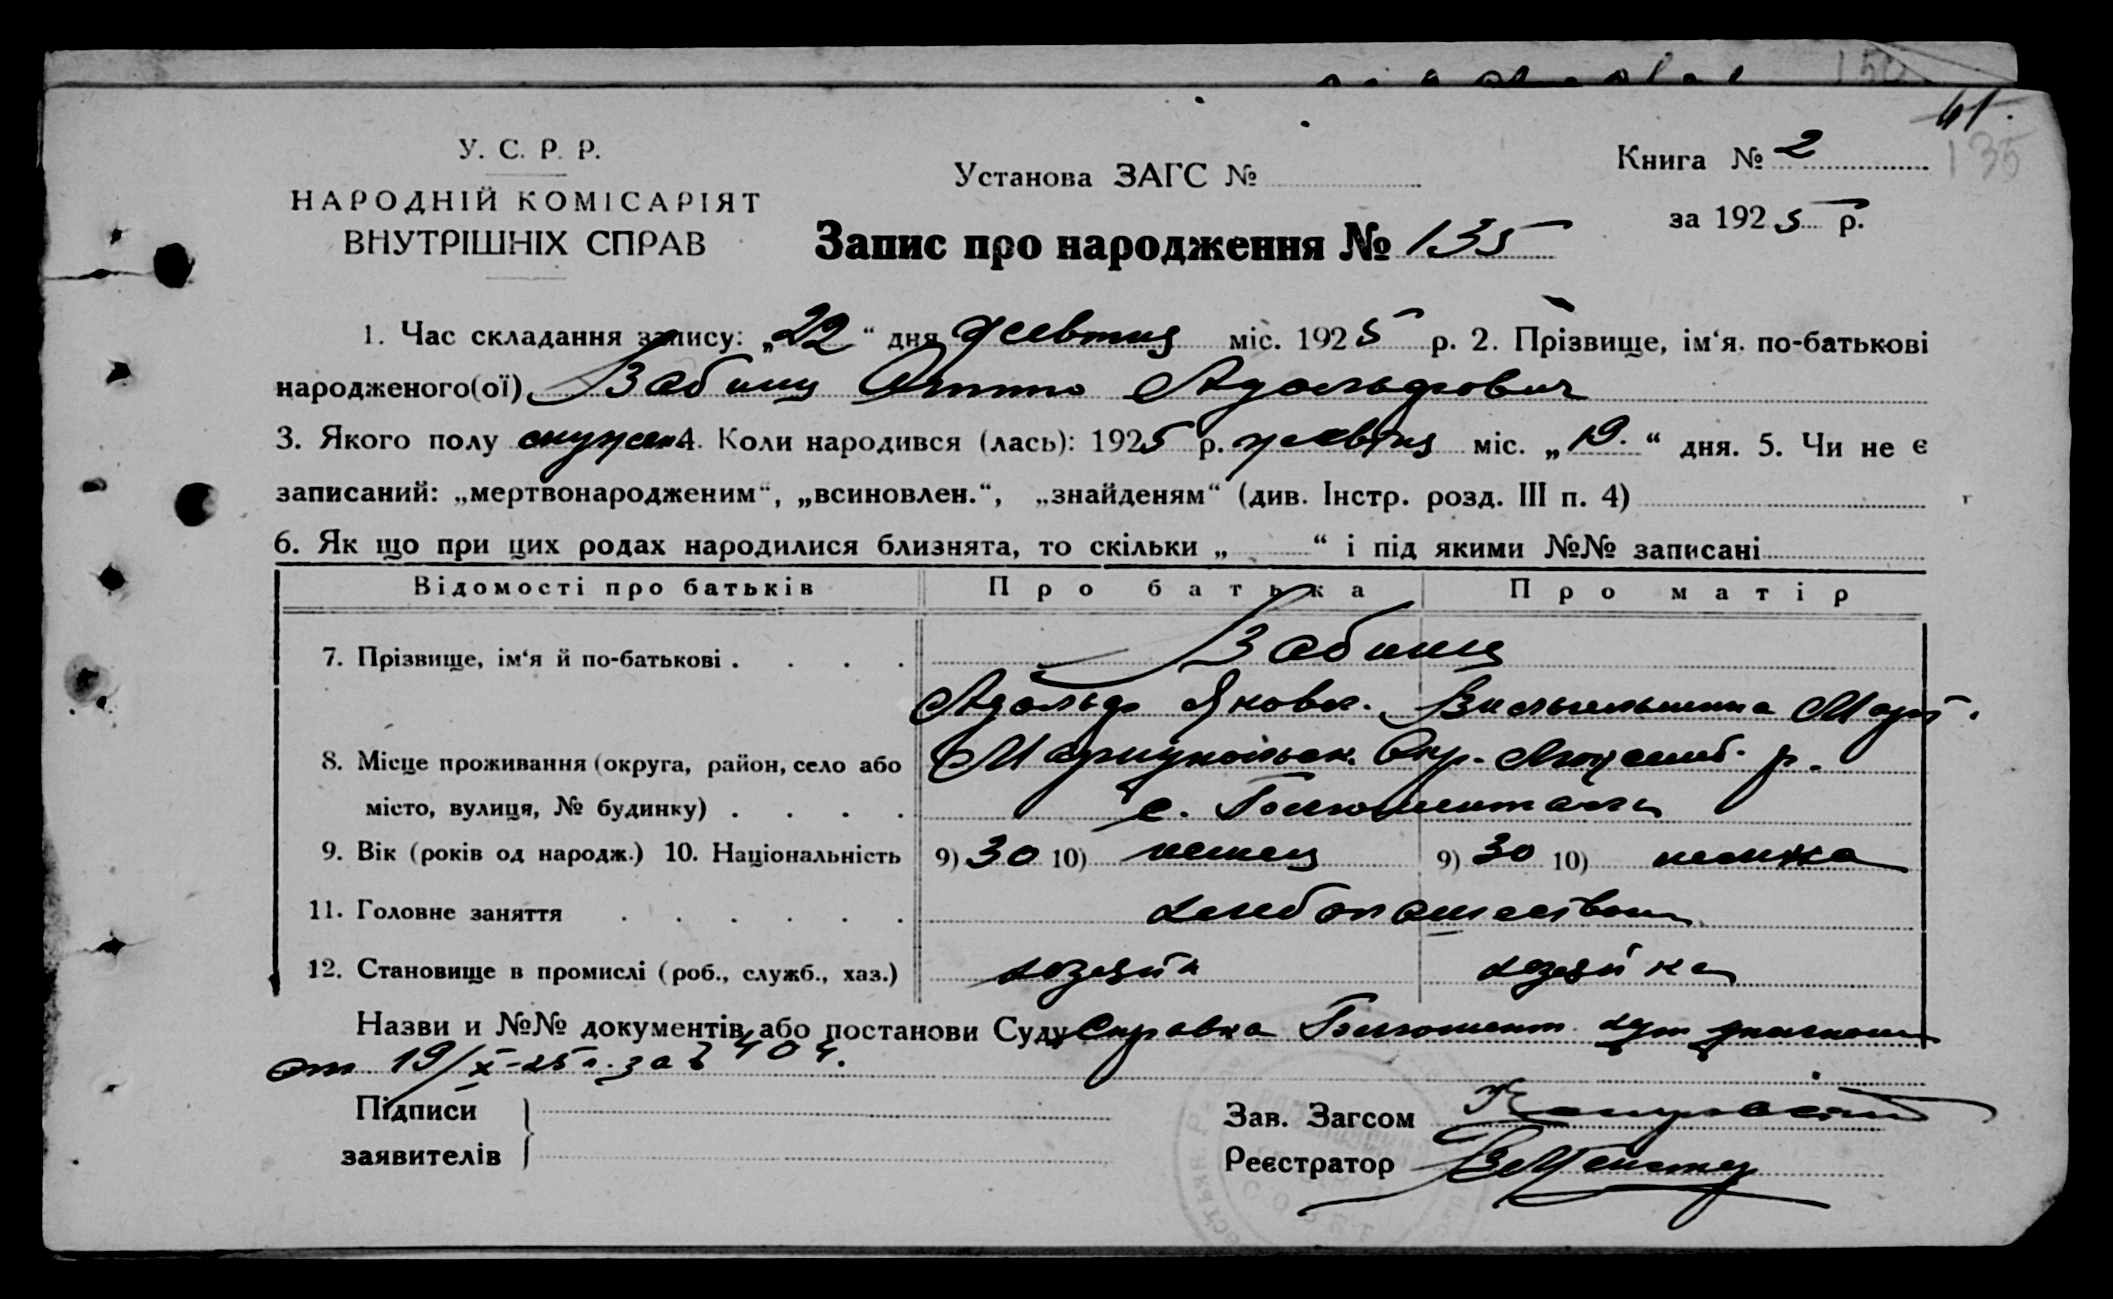 150
41.
135
У. С. Р. Р.
НАРОДНІЙ КОМІСАРІЯТ
ВНУТРІШНІХ СПРАВ
Установа ЗАГС №
Книга № 2
за 1925 р.
Запис про народження № 135
1. Час складання запису: „22“ дня жевтня міс. 1925 р. 2. Прізвище, ім‘я. по-батькові
народженого(ої) Бабинц Отто Адольфович
3. Якого полу 4. Коли народився (лась): 1925 р. жевтня міс. „19.“ дня. 5. Чи не є
записаний: „мертвонародженим“, „всиновлен.“, „знайденям“ (див. Інстр. розд. III п. 4)
6. Як що при цих родах народилися близнята, то скільки „ “ і під якими №№ записані
Відомості про батьків Про батька Про матір
7. Прізвище, ім‘я й по-батькові . . . . Бабинц
Адольф Яковл. Вильгельмина Март.
8. Місце проживання (округа, район, село або Мариупольск. Окр. р.
місто, вулиця, № будинку) . . . . с.
9. Вік (років од народж.) 10. Національність 9) 30 10) немец 9) 30 10) немка
11. Головне заняття . . . . . . хлебопашеством
12. Становище в промислі (роб., служб., хаз.) хозяйн хозяйка
Назви и №№ документів або постанови Суду Справка
от 19/X-25 г. за № 404.
Підписи
заявителів
Зав. Загсом
Реєстратор